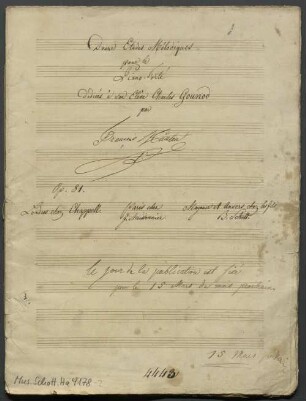 Douze Etudes Mélodiques
pour le
Piano-Forte
dédiées à son Elève Charles Gounod
par
Op. 81.
Londres chez Chappell. Paris chez Mayence et Anvers, chez les fils
B. Schott.
Le jour de la publication est fixé
pour le 15 Mars de mois prochain
15 Mars
4443
Mus. Schott. Ha 9178-2